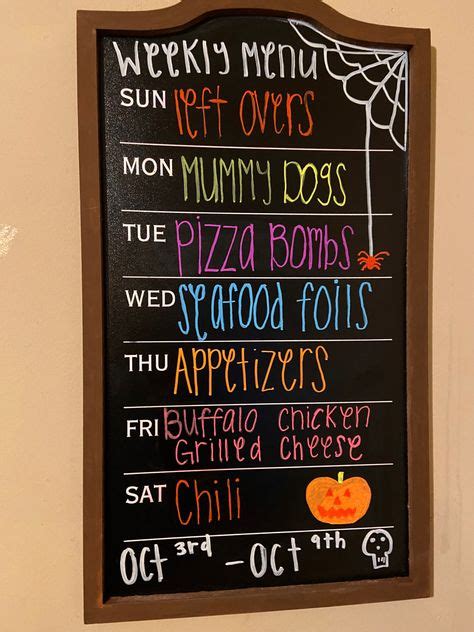 Weekly Menu
SUN Left Overs
MON Mummy Dogs
TUE Pizza Bombs
WED Seafood foils
THU Appetizers
FRI Buffalo Chicken
Grilled Cheese
SAT Chili
Oct 3rd - Oct 9th